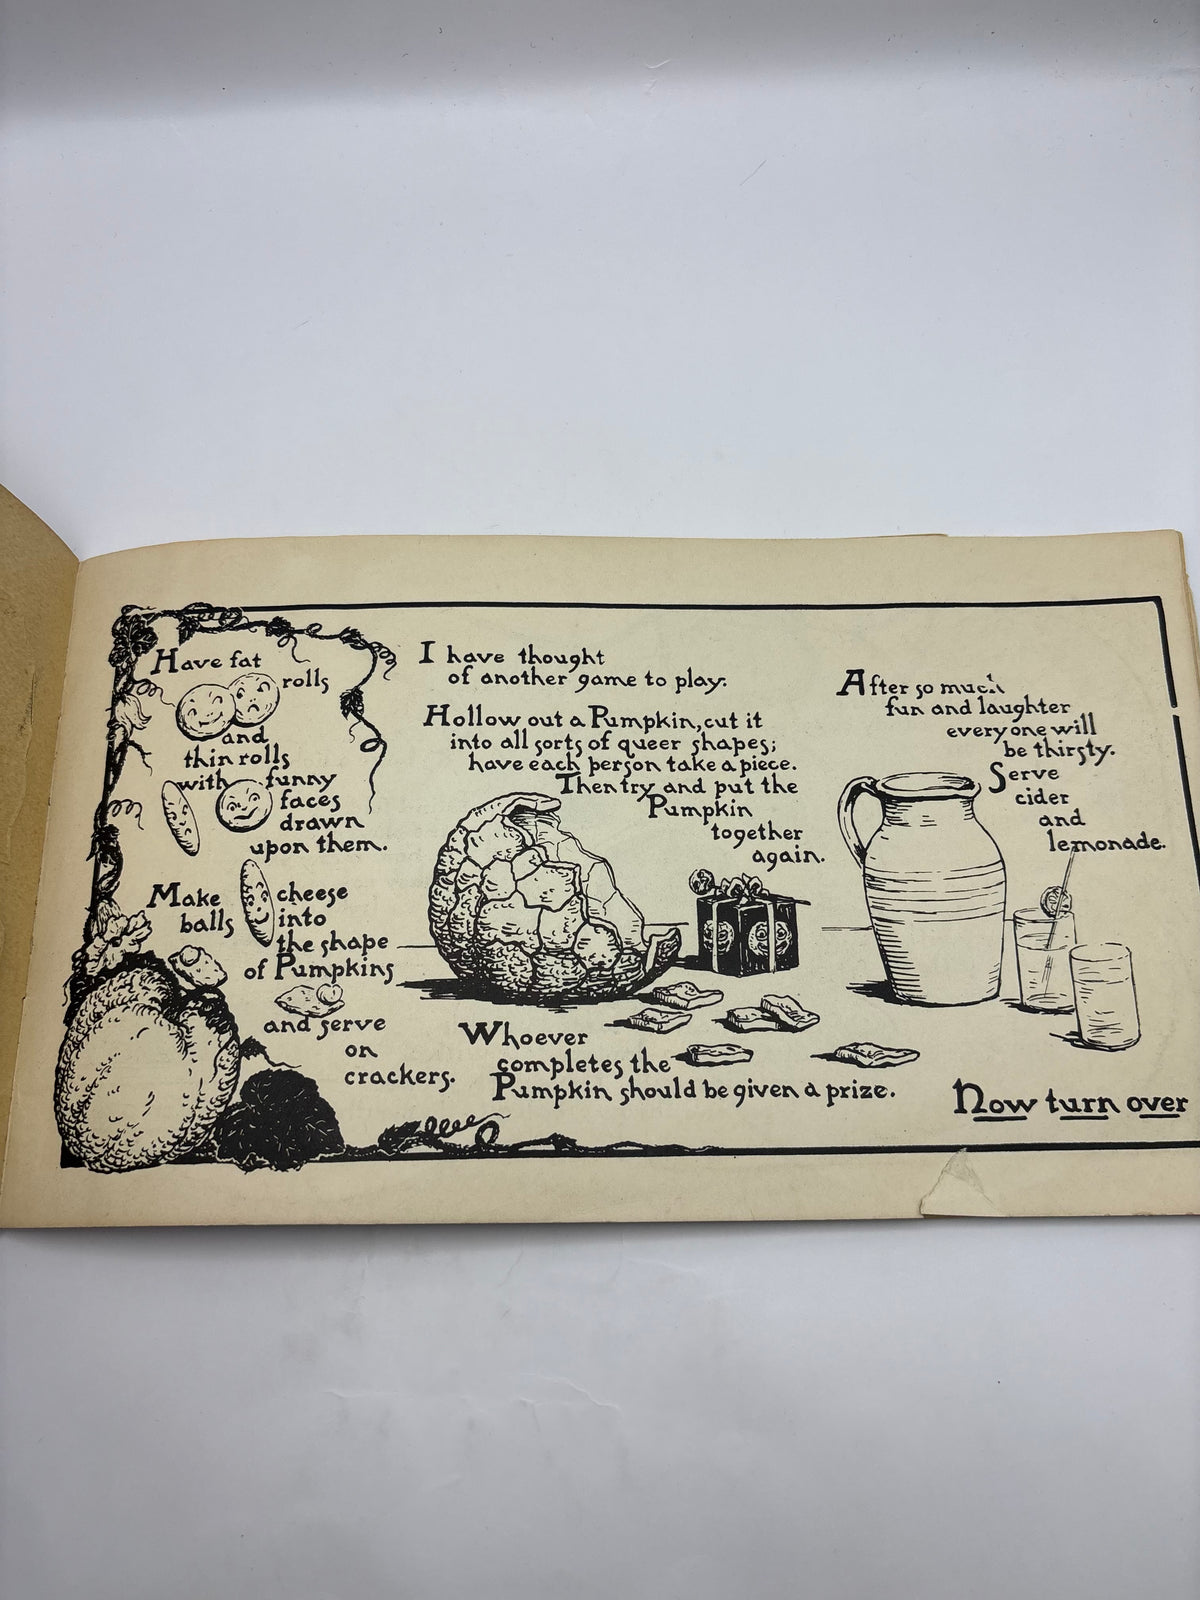 Have fat
rolls
and
thin rolls
with funny
faces
drawn
upon them.
Make cheese
balls into
the shape
of Pumpkins
and serve
on
crackers.
I have thought
of another game to play.
Hollow out a Pumpkin, cut it
into all sorts of queer shapes;
have each person take a piece.
Then try and put the
Pumpkin
together
again.
Whoever
completes the
Pumpkin should be given a prize.
After so much
fun and laughter
everyone will
be thirsty.
Serve
cider
and
lemonade.
Now turn over